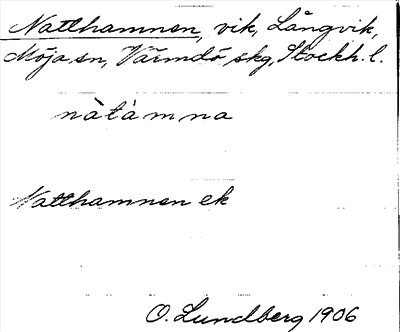 Natthamnen, vik, Långvik,
Möja sn, Värmdö skg, Stockh. l.
nàtàmna
Natthamnen ek
O. Lundberg 1906